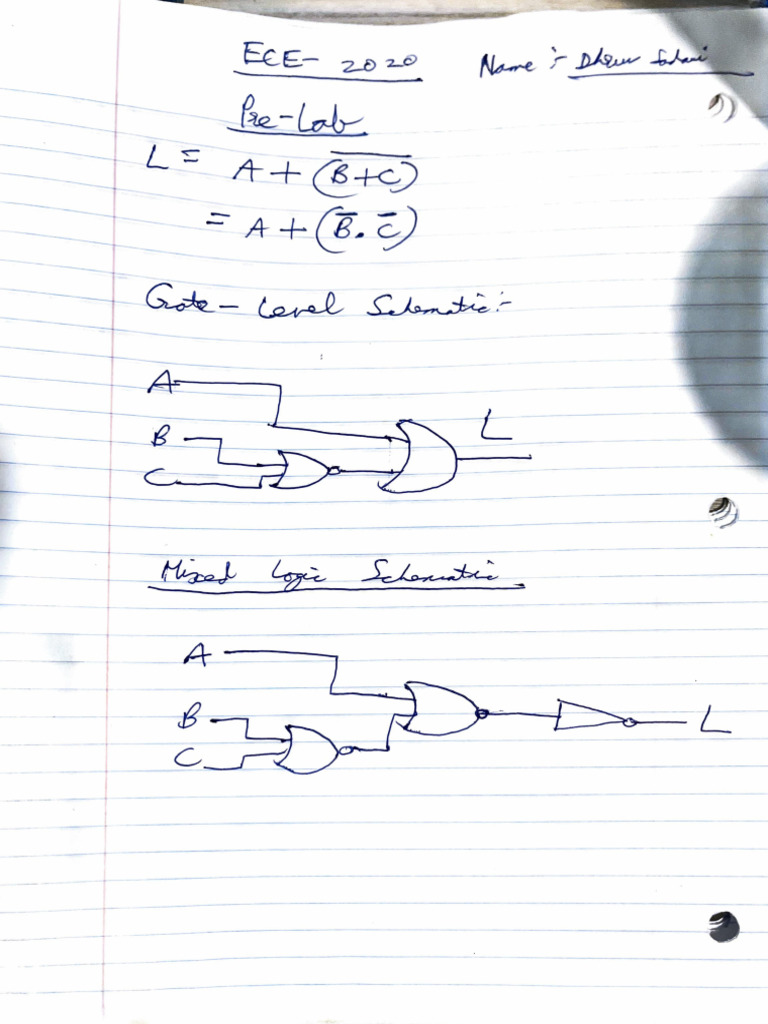 ECE- 2020 Name :-
Pre-Lab
L = A + (\overline{B+C})
= A + (B̅. C̅)
Gate - Level Schematic:-
A
B
C
L
Mixed Logic Schematic
A
B
C
L